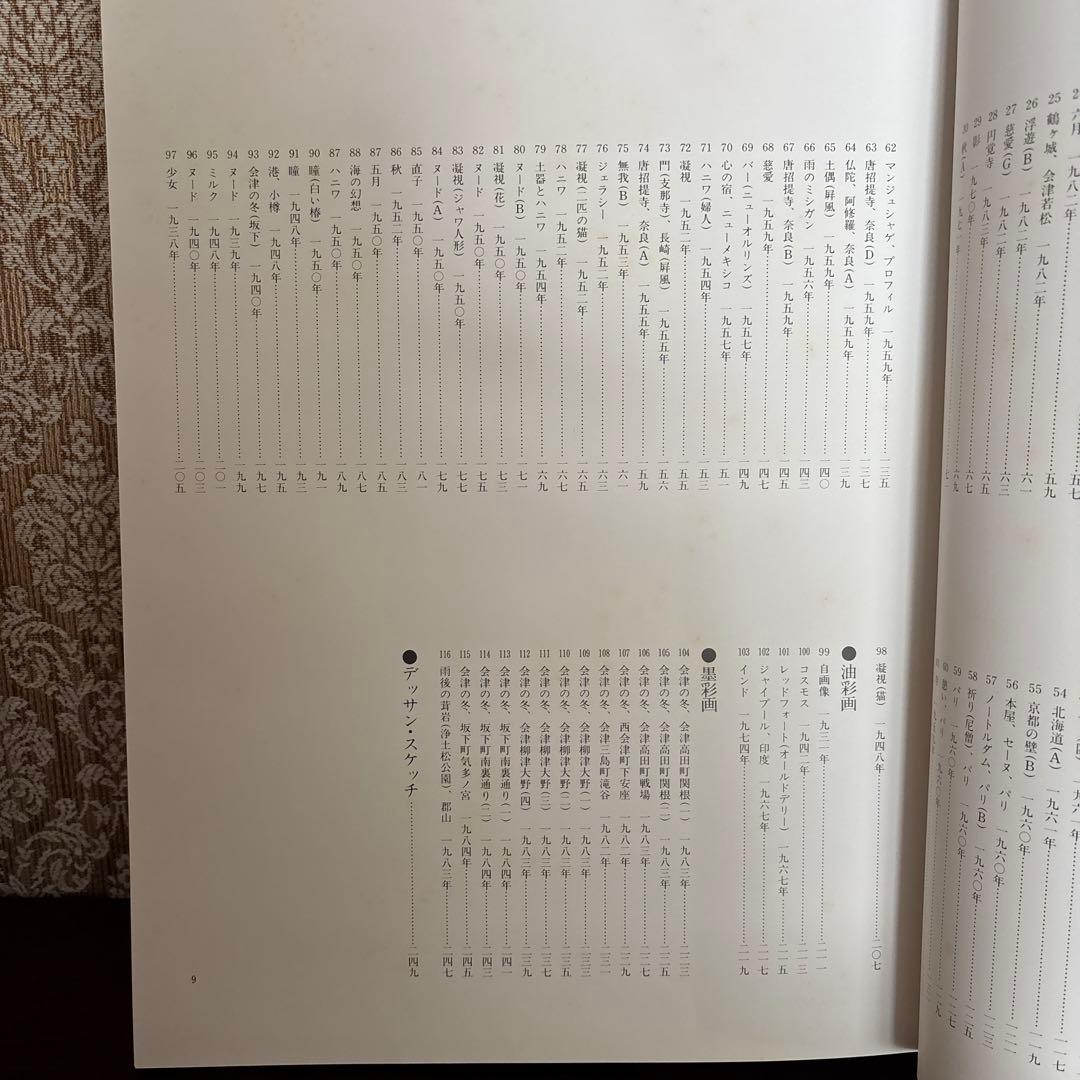 六月 一九八二年……五七
25 鶴ヶ城、会津若松 一九八二年……五九
26 浮遊(B) 一九八二年……六一
27 慈愛(G) 一九八二年……六三
28 円覚寺 一九八二年……六五
29 影 一九七〇年……六七
30 秋(A)……六九
54 北海道(A) 一九六一年……一一七
55 京都の壁(B) 一九六〇年……一一九
56 本屋、セーヌ、パリ 一九六〇年……一二一
57 ノートルダム、パリ(B) 一九六〇年……一二三
58 祈り(尼僧)、パリ 一九六〇年……一二五
59 パリ 一九六〇年……一二七
60 憩い、パリ 一九六〇年……一二九
62 マンジュシャゲ、プロフィル 一九五九年……一三五
63 唐招提寺、奈良(D) 一九五九年……一三七
64 仏陀、阿修羅、奈良(A) 一九五九年……一三九
65 土偶(屏風) 一九五九年……一四〇
66 雨のミシガン 一九五六年……一四三
67 唐招提寺、奈良(B) 一九五九年……一四五
68 慈愛 一九五九年……一四七
69 バー(ニューオルリンズ) 一九五七年……一四九
70 心の宿、ニューメキシコ 一九五七年……一五一
71 ハニワ(婦人) 一九五四年……一五三
72 凝視 一九五二年……一五五
73 門(支那寺)、長崎(屏風) 一九五五年……一五六
74 唐招提寺、奈良(A) 一九五五年……一五九
75 無我(B) 一九五三年……一六一
76 ジェラシー 一九五二年……一六三
77 凝視(二匹の猫) 一九五二年……一六五
78 ハニワ 一九五二年……一六七
79 土器とハニワ 一九五四年……一六九
80 ヌード(B) 一九五〇年……一七一
81 凝視(花) 一九五〇年……一七三
82 ヌード 一九五〇年……一七五
83 凝視(ジャワ人形) 一九五〇年……一七七
84 ヌード(A) 一九五〇年……一七九
85 直子 一九五〇年……一八一
86 秋 一九五二年……一八三
87 五月 一九五〇年……一八五
88 海の幻想 一九五〇年……一八七
87 ハニワ 一九五〇年……一八九
90 瞳(白い椿) 一九五〇年……一九一
91 瞳 一九四八年……一九三
92 港、小樽 一九四八年……一九五
93 会津の冬(坂下) 一九四〇年……一九七
94 ヌード 一九三九年……一九九
95 ミルク 一九四八年……二〇一
96 ヌード 一九四〇年……二〇三
97 少女 一九三八年……二〇五
98 凝視(猫) 一九四八年……二〇七
●油彩画
99 自画像 一九三一年……二一一
100 コスモス 一九四二年……二一三
101 レッドフォート(オールドデリー) 一九六七年……二一五
102 ジャイプール、印度 一九六七年……二一七
103 インド 一九七四年……二一九
●墨彩画
104 会津の冬、会津高田町関根(一) 一九八三年……二二三
105 会津の冬、会津高田町関根(二) 一九八三年……二二五
106 会津の冬、会津高田町戦場 一九八三年……二二七
107 会津の冬、西会津町下安座 一九八二年……二二九
108 会津の冬、会津三島町滝谷 一九八二年……二三一
109 会津の冬、会津柳津大野(一) 一九八三年……二三三
110 会津の冬、会津柳津大野(二) 一九八三年……二三五
111 会津の冬、会津柳津大野(三) 一九八三年……二三七
112 会津の冬、会津柳津大野(四) 一九八三年……二三九
113 会津の冬、坂下町南裏通り(一) 一九八四年……二四一
114 会津の冬、坂下町南裏通り(二) 一九八四年……二四三
115 会津の冬、坂下町気多ノ宮 一九八四年……二四五
116 雨後の茸岩(浄土松公園)、郡山 一九八三年……二四七
●デッサン・スケッチ……二四九
9